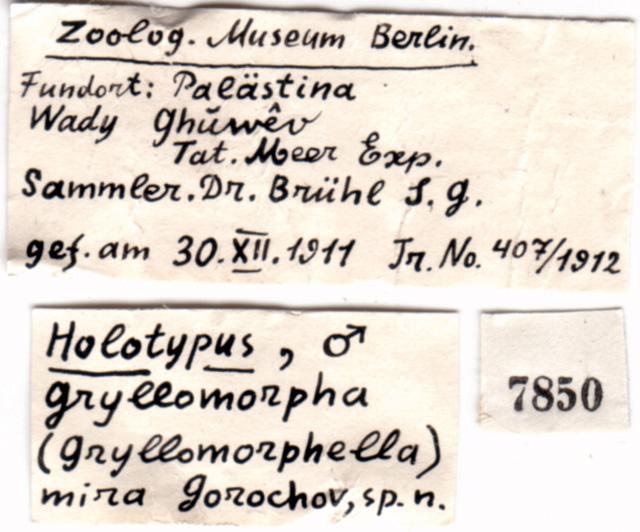 Zoolog. Museum Berlin.
Fundort: Palästina
Wady Ghŭwêv
Tat. Meer Exp.
Sammler. Dr. Brühl S. G.
gef. am 30.XII.1911 Jr. No. 407/1912
Holotypus, ♂
Gryllomorpha
(Gryllomorphella)
mira Gorochov, sp. n.
7850